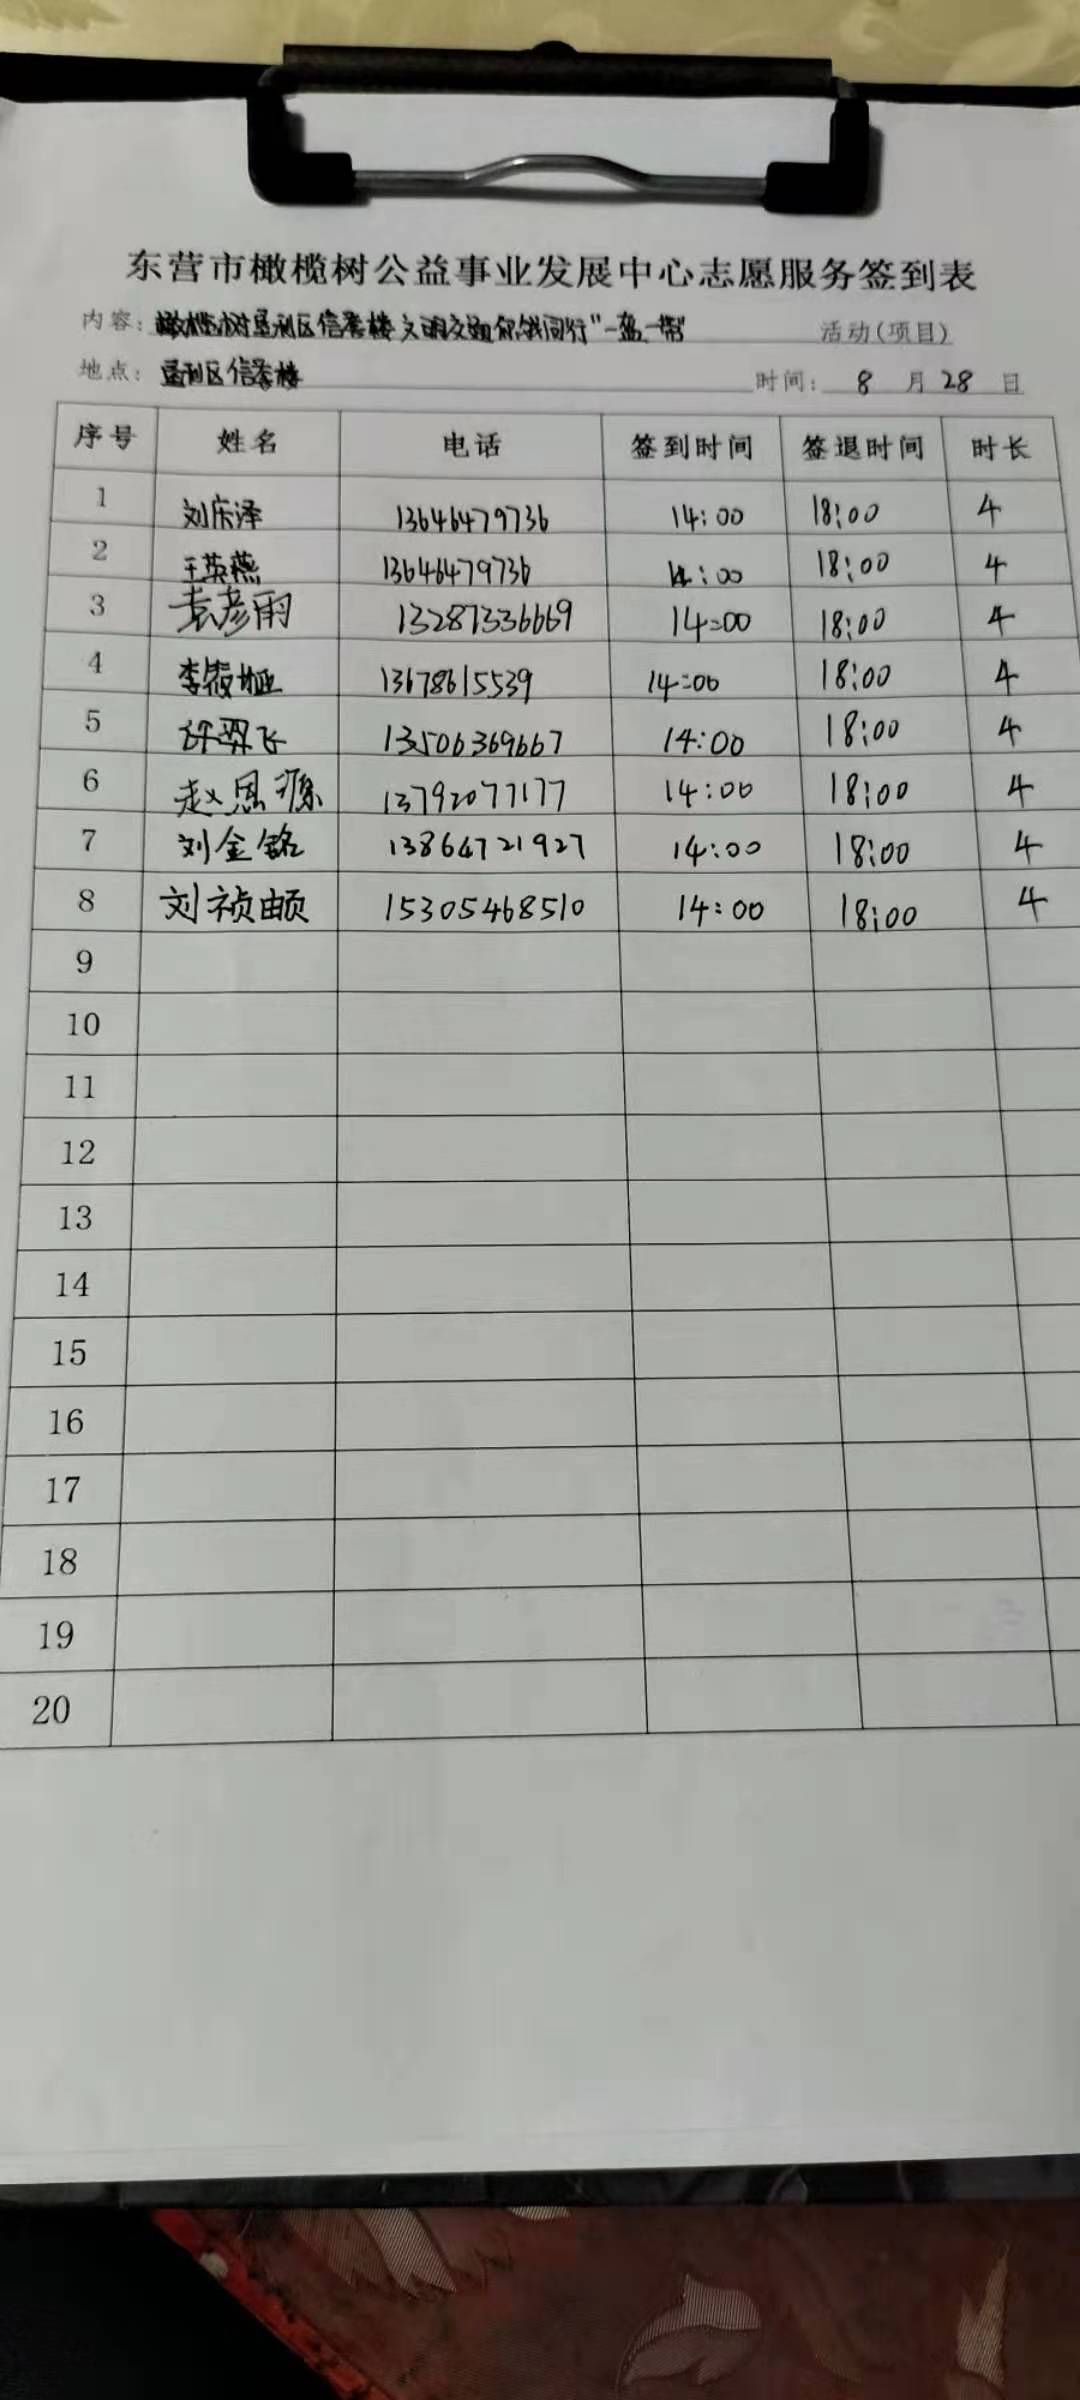 东营市橄榄树公益事业发展中心志愿服务签到表
内容：橄榄树垦利区信誉楼文明交通你我同行"一盔一带" 活动(项目)
地点：垦利区信誉楼 时间：8月28日
序号 姓名 电话 签到时间 签退时间 时长
1 刘庆泽 13646479736 14:00 18:00 4
2 王英燕 13646479736 14:00 18:00 4
3 袁彦雨 13287336669 14:00 18:00 4
4 李筱垭 13678615539 14:00 18:00 4
5 许羿飞 13506369667 14:00 18:00 4
6 赵恩 13792077177 14:00 18:00 4
7 刘金铭 13864721927 14:00 18:00 4
8 刘祯 15305468510 14:00 18:00 4
9
10
11
12
13
14
15
16
17
18
19
20